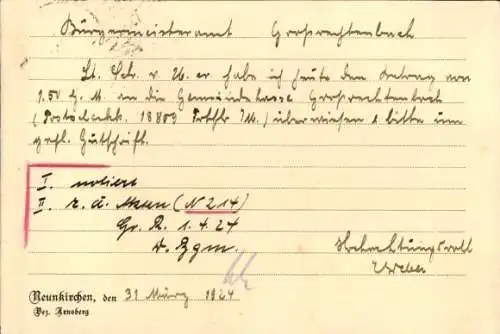 Bürgermeisteramt Großrechtenbach
Lt. Schr. v. 26. er. habe ich heute den Betrag von
1.50 G. M. an die Gemeindekasse Großrechtenbach
(Postscheckk. 18803 Frkfht /M.) überwiesen u. bitte um
gefl. Gutschrift.
I. notiert
II. z. d. Akten (N 214)
Gr. R. 1.4.24
D. Bgm.
Hochachtungsvoll
Neunkirchen, den 31 März 1924
Bez. Arnsberg